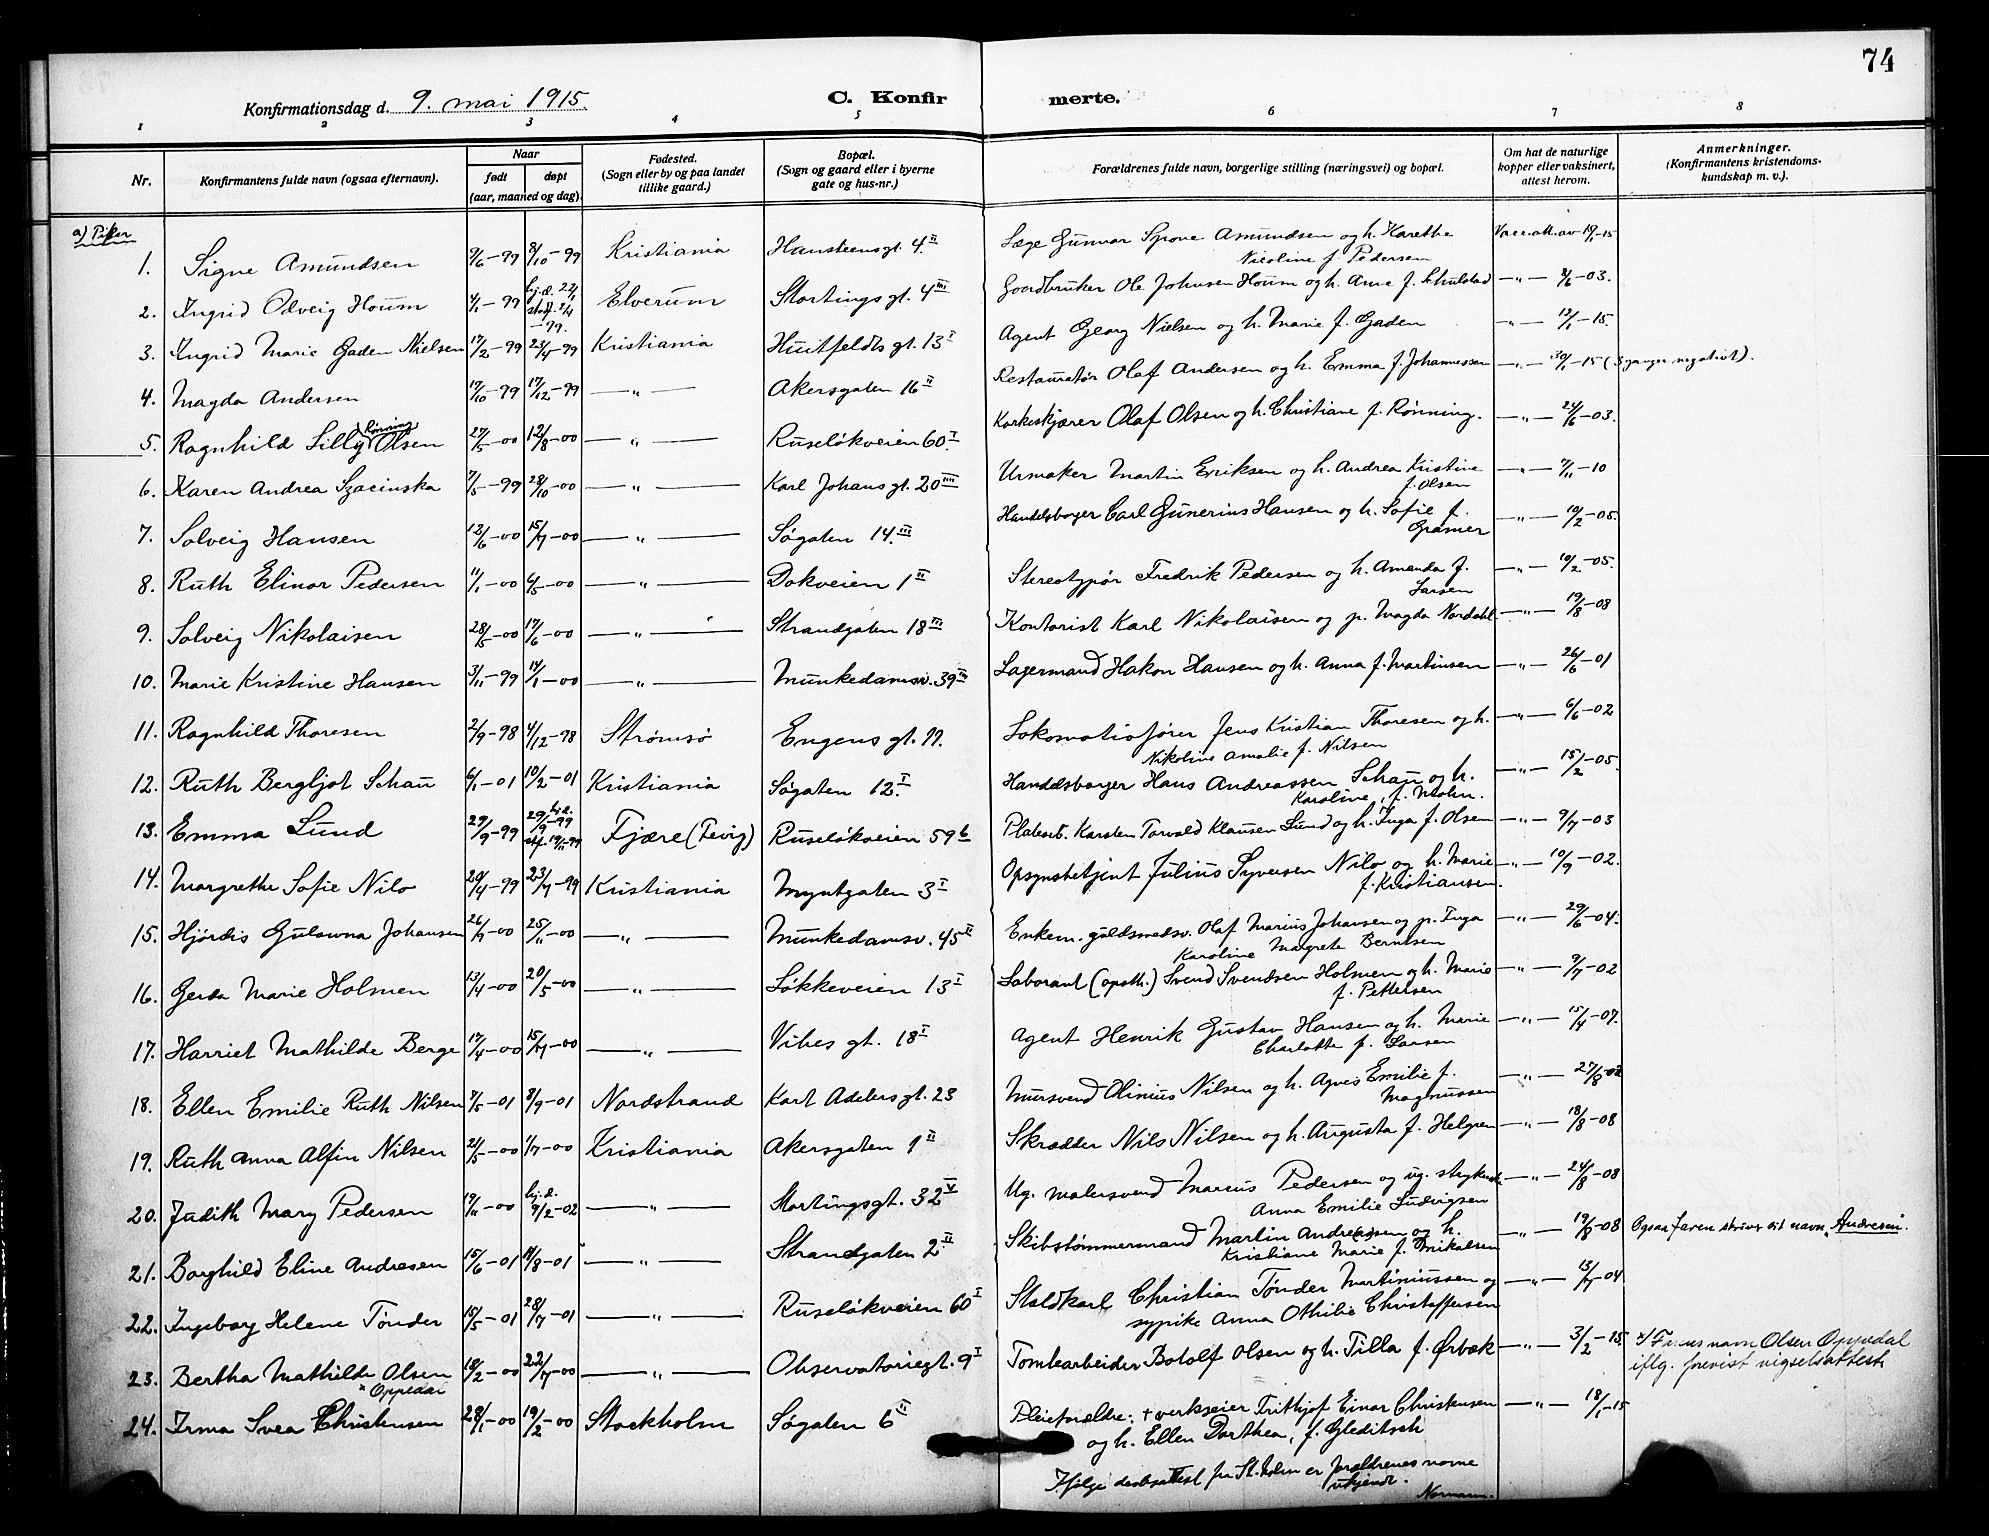 74
Konfirmationsdag d. 9. mai 1915.
C. Konfirmerte.
1 2 3 4 5 6 7 8
Nr.
Konfirmantens fulde navn (ogsaa efternavn).
Naar
født døpt
(aar, maaned og dag).
Fødested.
(Sogn eller by og paa landet
tillike gaard.)
Bopæl.
(Sogn og gaard eller i byerne
gate og hus-nr.)
Forældrenes fulde navn, borgerlige stilling (næringsvei) og bopæl.
Om hat de naturlige
kopper eller vaksinert,
attest herom.
Anmerkninger.
(Konfirmantens kristendoms-
kundskap m. v.).
a) Piker
1. Signe Amundsen 9/6-99 8/10-99 Kristiania Hansteensgt. 4 II Læge Gunnar Amundsen og h. Harethe Nicoline f. Pedersen Vacc. att. av 18/1-15
2. Ingrid Odveig Houm 4/1-99 hj.d. 22/1 stadf. 2/4 -99. Elverum Stortingsgt. 4 III Gaardbruker Ole Johnsen Houm og h. Anne f. Schulstad -"- 8/6-03.
3. Ingrid Marie Gaden Nielsen 17/2-99 23/4-99 Kristiania Huitfeldts gt. 13 I Agent Georg Nielsen og h. Marie f. Gaden -"- 12/1-15.
4. Magda Andersen 17/10-99 17/12-99 -"- Akersgaten 16 II Restauratør Olaf Andersen og h. Emma f. Johannessen -"- 30/1-15 (3 ganger negativt).
5. Ragnhild Lilly Rønning Olsen 27/5-00 12/8-00 -"- Ruseløkveien 60 I Korkeskjærer Olaf Olsen og h. Christiane f. Rønning. -"- 24/6-03.
6. Karen Andrea Szacinska 7/5-99 28/10-00 -"- Karl Johans gt. 20 IIII Urmaker Martin Eriksen og h. Andrea Kristine f. Olsen -"- 7/11-10
7. Solveig Hansen 12/6-00 15/7-00 -"- Søgaten 14 III Handelsborger Carl Gunerius Hansen og h. Sofie f. Gramer -"- 10/2-05.
8. Ruth Elinor Pedersen 11/1-00 4/5-00 -"- Dokveien 1 II Stereotypør Fredrik Pedersen og h. Amanda f. Larsen -"- 10/2-05.
9. Solveig Nikolaisen 28/5-00 17/6-00 -"- Strandgaten 18 III Kontorist Karl Nikolaisen og p. Magda Nordahl -"- 19/8-08
10. Marie Kristine Hansen 3/11-99 14/1-00 -"- Munkedamsv. 39 III Lagermand Hakon Hansen og h. Anna f. Martinsen -"- 26/6-01
11. Ragnhild Thoresen 2/9-98 4/12-98 Strømsø Engens gt. 11. Lokomotivfører Jens Kristian Thoresen og h. Nikoline Amalie f. Nilsen -"- 6/6-02
12. Ruth Bergljot Schau 6/1-01 10/2-01 Kristiania Søgaten 12 I Handelsborger Hans Andreassen Schau og h. Karoline, f. Mohn. -"- 15/2-05.
13. Emma Lund 29/9-99 hj.d. 29/9-99 stf. 19/11-99 Fjære (Fevig) Ruseløkveien 59 b Platearb. Karsten Torvald Klausen Lund og h. Inga f. Olsen -"- 9/7-03
14. Margrethe Sofie Nilo 29/4-99 23/7-99 Kristiania Myntgaten 3 I Opsynsbetjent Julius Syversen Nilo og h. Marie f. Kristiansen. -"- 10/9-02.
15. Hjørdis Gulowna Johansen 26/7-00 25/11-00 -"- Munkedamsv. 45 II Enkem. guldsmedsv. Olaf Marius Johansen og p. Inga Karoline Margrete Berntsen -"- 29/6-04.
16. Gerda Marie Holmen 13/4-00 20/5-00 -"- Løkkeveien 13 I Laborant (apoth.) Svend Svendsen Holmen og h. Marie f. Pettersen -"- 9/7-02
17. Harriet Mathilde Berge 17/4-00 15/7-00 -"- Vibes gt. 18 I Agent Henrik Gustav Hansen og h. Marie Charlotte f. Larsen -"- 15/4-07.
18. Ellen Emilie Ruth Nilsen 7/5-01 8/9-01 Nordstrand Kort Adelersgt. 23 Mursvend Olinius Nilsen og h. Agnes Emilie f. Magnussen -"- 27/8-02
19. Ruth Anna Alfin Nilsen 21/5-00 1/7-00 Kristiania Akersgaten 1 II Skrædder Nils Nilsen og h. Augusta f. Helgren -"- 18/8-08
20. Judith Mary Pedersen 19/11-00 hj.d. 9/2-02 -"- Stortingsgt. 32 V Ug. malersvend Marius Pedersen og ug. strykerske Anna Emilie Ludvigsen -"- 24/8-08
21. Borghild Eline Andresen 15/6-01 11/8-01 -"- Strandgaten 2 II Skibstømmermand Martin Andreassen og h. Kristiane Marie f. Mikalsen -"- 19/8-08 Ogsaa faren skriver sit navn "Andresen".
22. Ingeborg Helene Tønder 15/5-01 28/7-01 -"- Ruseløkveien 60 I Staldkarl Christian Tønder Martiniussen og sypike Anna Othilie Christoffersen -"- 13/7-04
23. Bertha Mathilde Olsen x Oppedal 18/2-00 22/7-00 -"- Observatoriegt. 9 I Tomtearbeider Botolf Olsen og h. Tilla f. Ørbæk -"- 3/2-15. x) Farens navn Olsen Oppedal iflg. forevist vigselsattest
24. Irma Svea Christensen 28/1-00 19/2-00 Stockholm Søgaten 6 II Pleieforældre: + verkseier Frithjof Einar Christensen og h. Ellen Dorthea, f. Gleditsch -"- 18/1-15
Ifølge daabsattest fra St.holm er forældrenes navne ukjendt.
Normann.